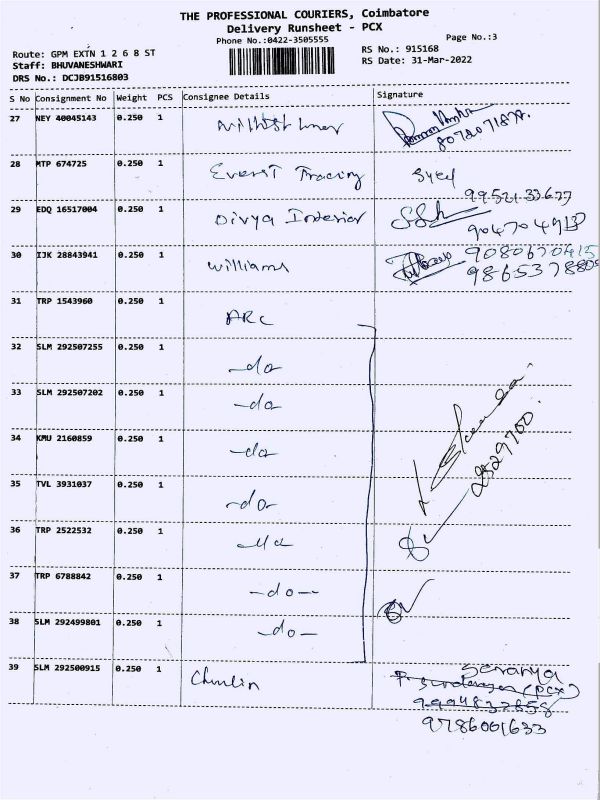 THE PROFESSIONAL COURIERS, Coimbatore
Delivery Runsheet - PCX
Phone No.:0422-3505555
Page No.:3
Route: GPM EXTN 1 2 6 8 ST
RS No.: 915168
Staff: BHUVANESHWARI
RS Date: 31-Mar-2022
DRS No.: DCJB91516803
S No Consignment No Weight PCS Consignee Details Signature
27 NEY 40045143 0.250 1
28 MTP 674725 0.250 1 Everest Tracing Syed
9952133677
29 EDQ 16517004 0.250 1 Divya Interior
30 IJK 28843941 0.250 1 Williams 9080670415
31 TRP 1543960 0.250 1 ARC
32 SLM 292507255 0.250 1 -do
33 SLM 292507202 0.250 1 -do
34 KMU 2160859 0.250 1 -do
35 TVL 3931037 0.250 1 -do-
2529700
36 TRP 2522532 0.250 1
37 TRP 6788842 0.250 1 -do-
38 SLM 292499801 0.250 1 -do-
39 SLM 292500915 0.250 1 Saranya
(PCX)
9786001633